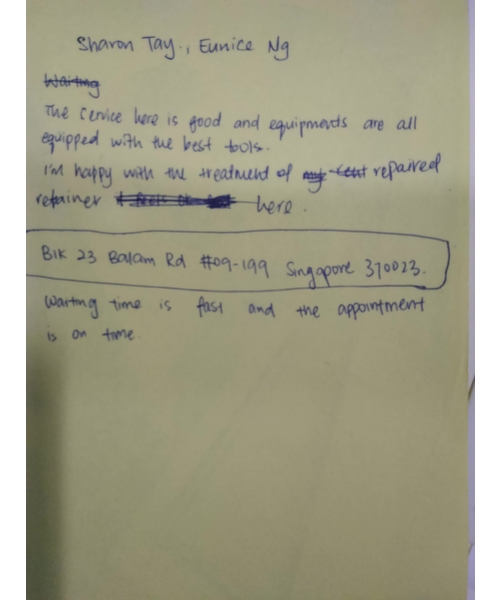 Sharon Tay., Eunice Ng
Waiting
The Cervice here is good and equipments are all
equipped with the best tools.
I'm happy with the treatment of my repaired
retainer here.
Blk 23 Balam Rd #09-199 Singapore 370023.
Waiting time is fast and the appointment
is on time.